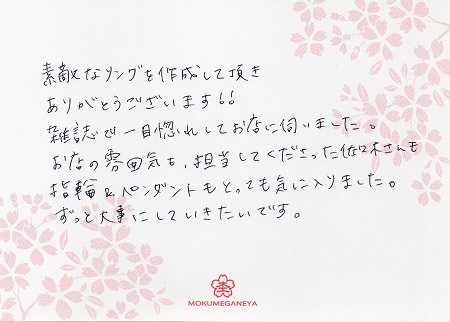 素敵なリングを作成して頂き
ありがとうございます!!
雑誌で一目惚れしてお店に伺いました。
お店の雰囲気も、担当してくださった佐々木さんも
指輪&ペンダントもとっても気に入りました。
ずっと大事にしていきたいです。
MOKUMEGANEYA